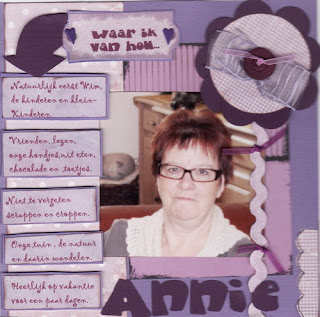 Waar ik
van hou...
Natuurlijk eerst Wim,
de kinderen en klein-
Kinderen.
Vrienden, lezen,
onze hondjes, uit eten,
chocolade en toetjes.
Niet te vergeten
scrappen en croppen.
Onze tuin, de natuur
en daarin wandelen.
Heerlijk op vakantie
voor een paar dagen.
Annie